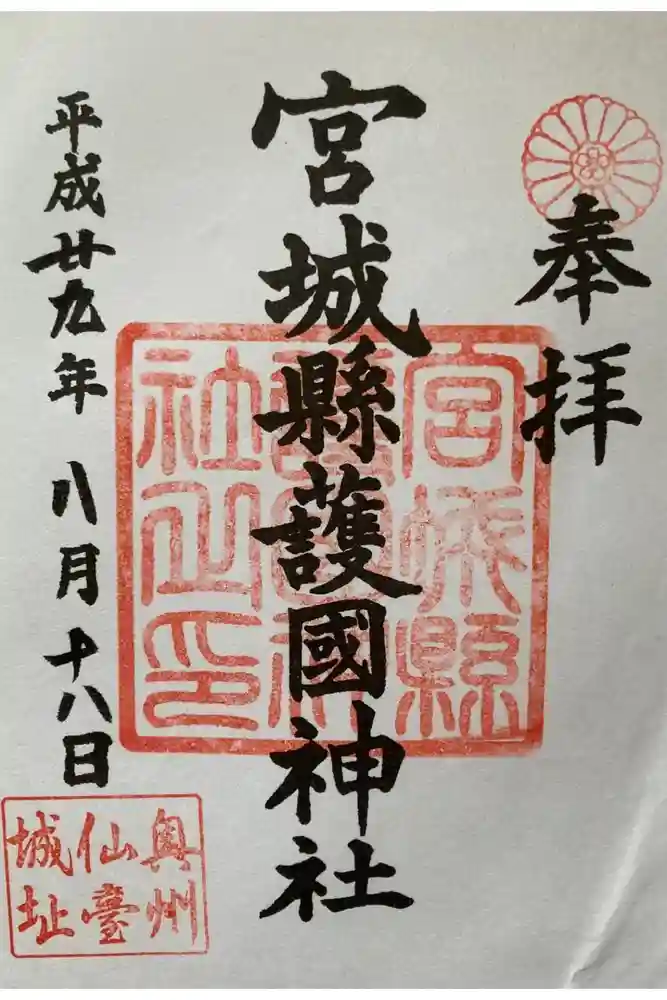 奉拝
宮城縣護國神社
宮城縣護國神社之印
平成廿九年八月十八日
奥州
仙臺
城址